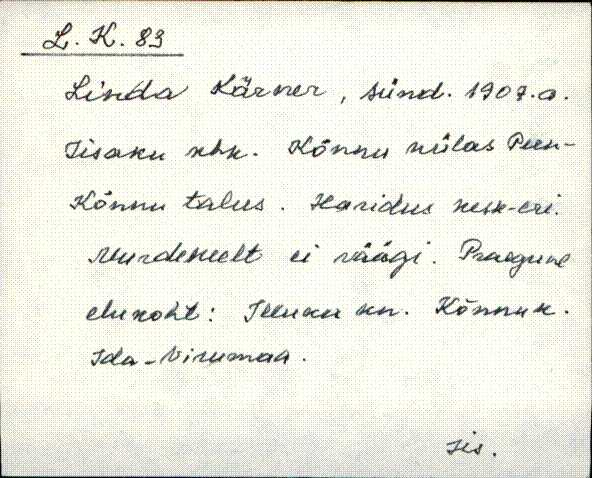 L. K. 83
Linda Kärner, sünd. 1907.a.
Iisaku khk. Kõnnu külas Peen-
Kõnnu talus. Haridus kesk-eri.
Murdekeelt ei räägi. Praegune
elukoht: Illuka kn. Kõnnu k.
Ida-Virumaa.
Iis.